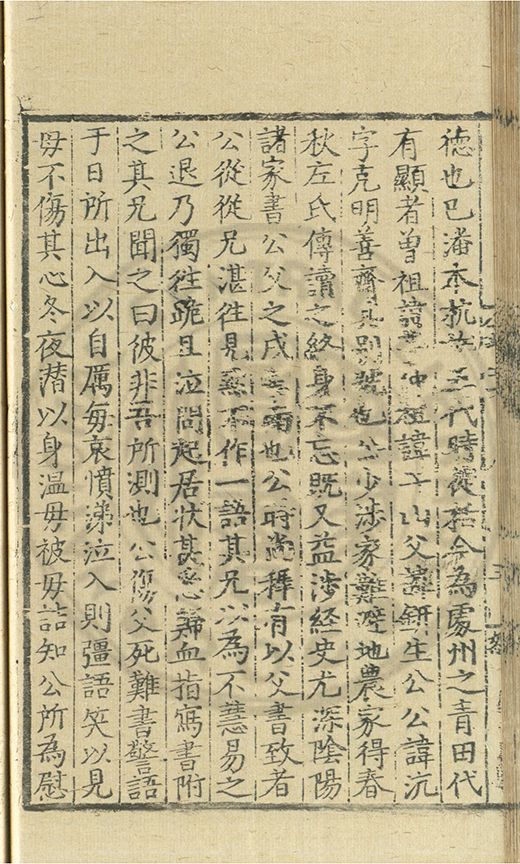 德也巳潘本杭五代時從括今為處州之青田代
有顯者曾祖諱仲祖諱子山父諱生公公諱沆
字克明善齋其别號也公少涉家難避地農家得春
秋左氏傳讀之終身不忘既又益涉經史尤深陰陽
諸家書公父之戍南也公時尚穉有以父書致者
公從從兄湛徃見無不作一語其兄以為不慧易之
公退乃獨徃跪且泣問起居狀甚悉歸血指寫書附
之其兄聞之曰彼非吾所測也公傷父死難書警語
于日所出入以自厲每哀憤涕泣入則彊語笑以見
毋不傷其心冬夜潜以身溫毋被毋詰知公所為慰